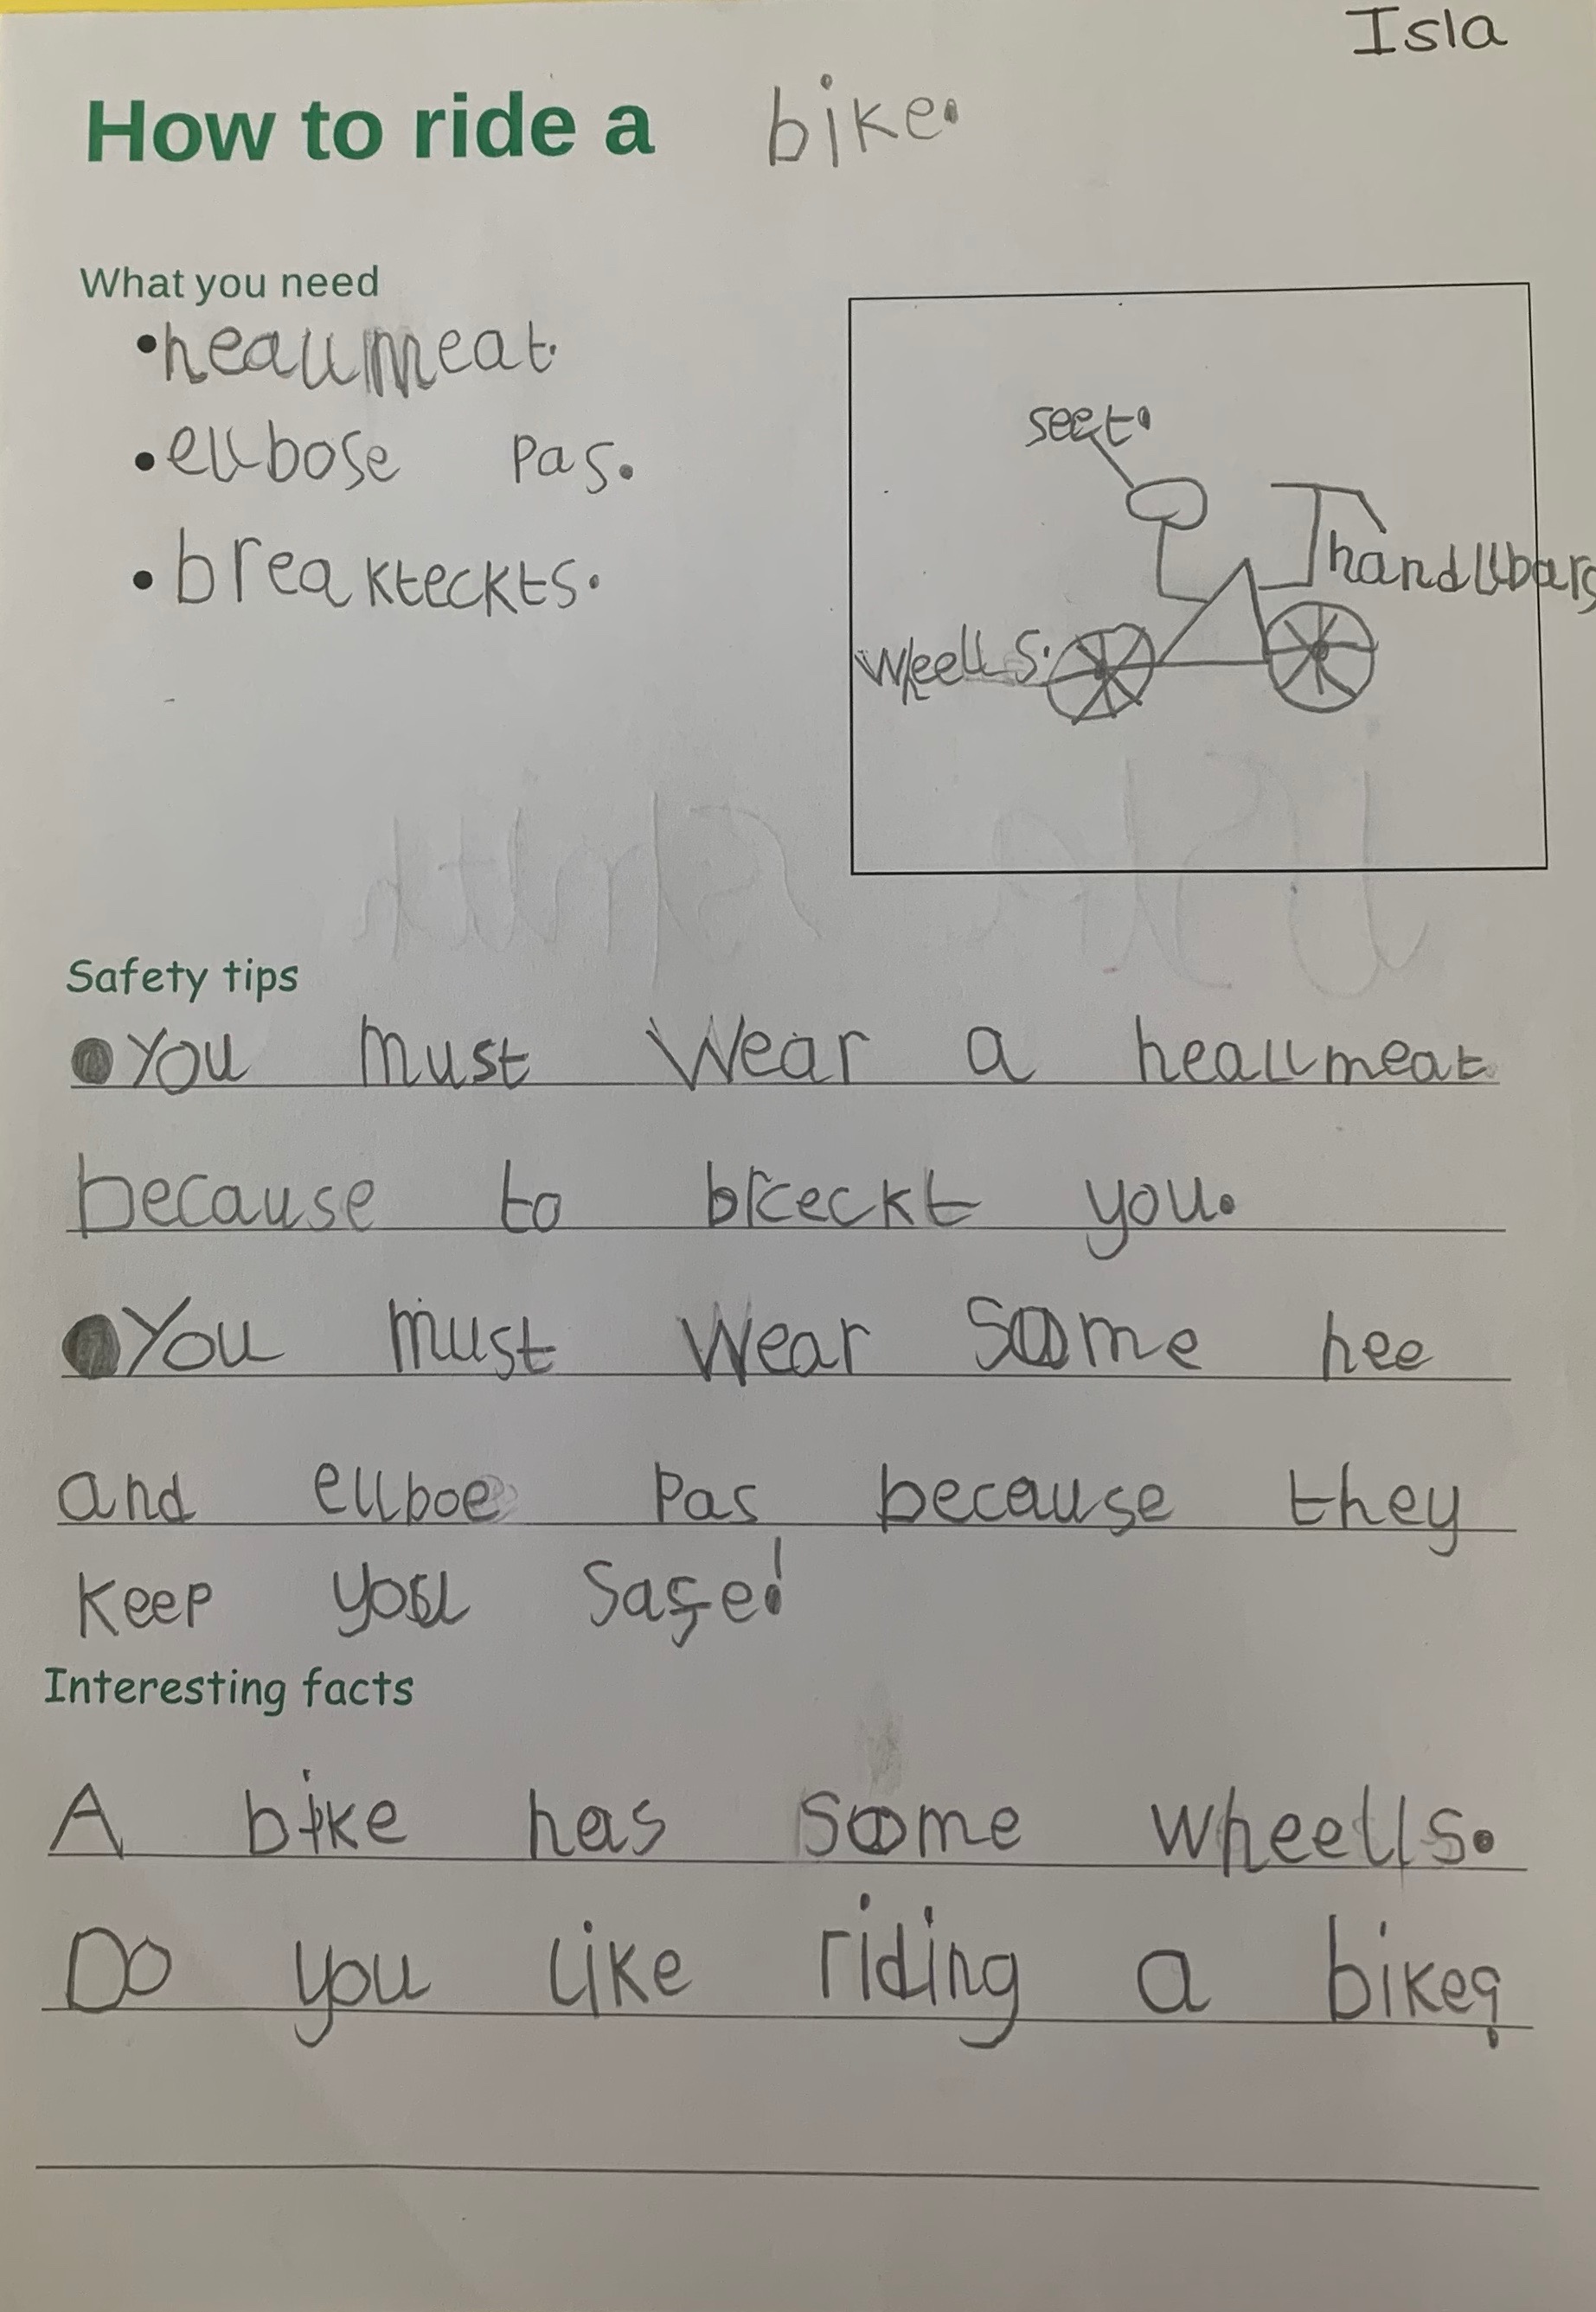 Isla
How to ride a bike.
What you need
•heallmeat.
•ellbose pas.
•breakteckts.
seet.
handllbars
wheells.
Safety tips
•You must wear a heallmeat
because to breckt you.
•You must wear some nee
and ellboe pas because they
keep you safe!
Interesting facts
A bike has some wheells.
Do you like riding a bike?